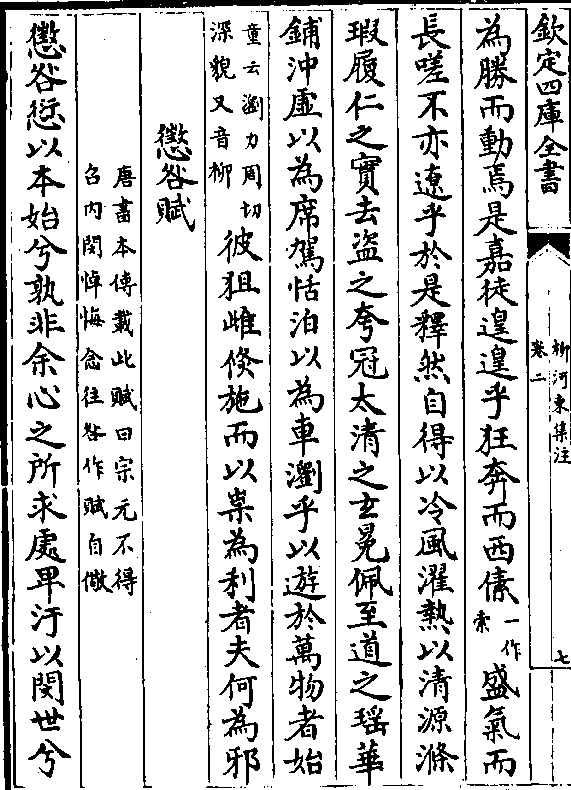 欽定四庫全書
柳河東集注
卷二
七
為勝而動焉是嘉徒遑遑乎狂奔而西傃
一作
索
盛氣而
長嗟不亦遼乎於是釋然自得以冷風濯熱以清源滌
瑕履仁之實去盜之夸冠太清之玄冕佩至道之瑶華
鋪沖虚以為席駕恬泊以為車瀏乎以遊於萬物者始
童云瀏力周切
深貌又音柳
彼狙雌倐施而以祟為利者夫何為邪
懲咎賦
唐書本傳載此賦曰宗元不得
召内閔悼悔念往咎作賦自儆
懲咎愆以本始兮孰非余心之所求處卑汙以閔世兮